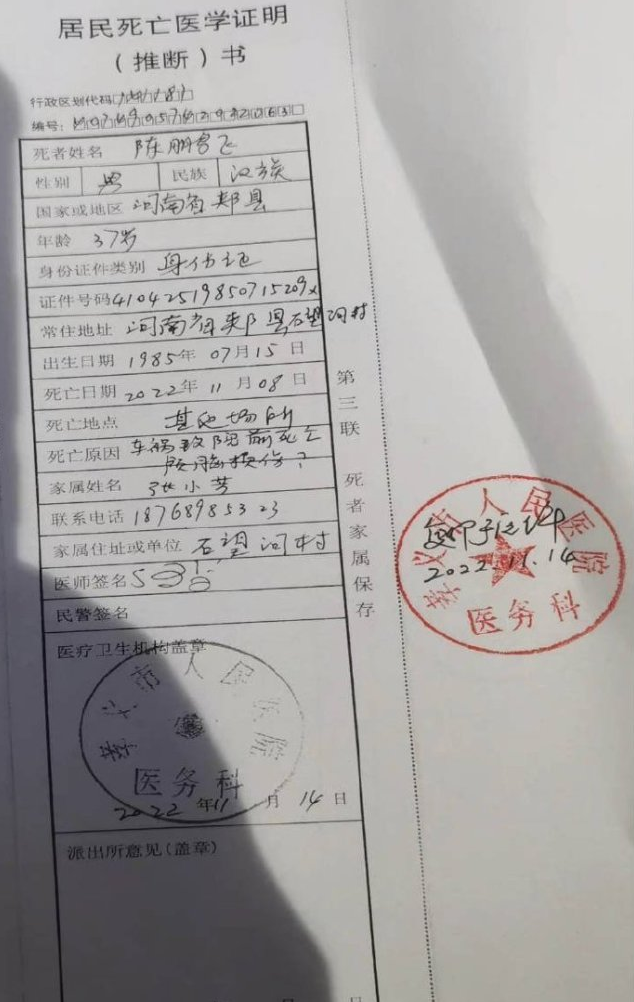 居民死亡医学证明
（推断）书
行政区划代码
编号：
死者姓名 陈鹏飞
性别 男 民族 汉族
国家或地区 河南省郏县
年龄 37岁
身份证件类别 身份证
证件号码 41042519850715209x
常住地址 河南省郏县石望河村
出生日期 1985年07月15日
死亡日期 2022年11月08日
死亡地点 其他场所
死亡原因 车祸致院前死亡
颅脑损伤？
家属姓名 张小芳
联系电话 18768985323
家属住址或单位 石望河村
医师签名
民警签名
医疗卫生机构盖章
义市人民医院
医务科
2022年11月14日
派出所意见(盖章)
第三联 死者家属保存
义市人民医院
2022.11.14
医务科